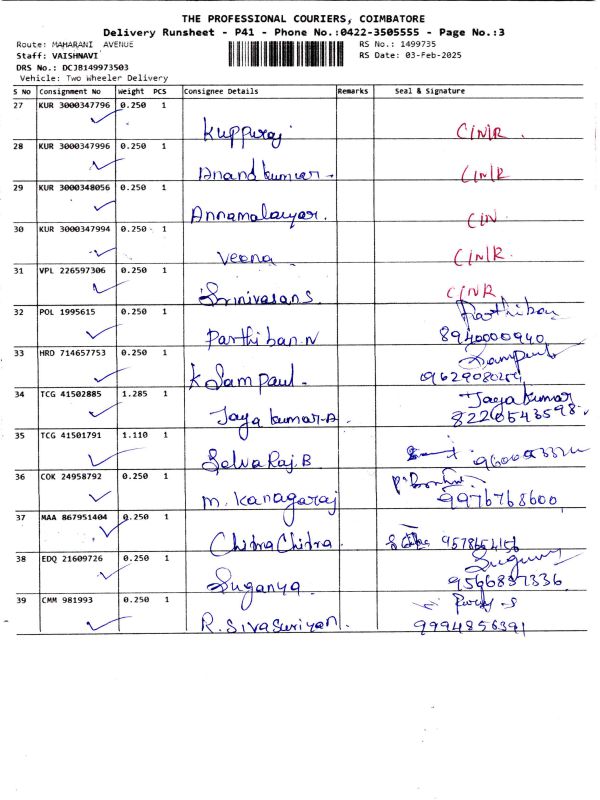 THE PROFESSIONAL COURIERS, COIMBATORE
Delivery Runsheet - P41 - Phone No.:0422-3505555 - Page No.:3
Route: MAHARANI AVENUE RS No.: 1499735
Staff: VAISHNAVI RS Date: 03-Feb-2025
DRS No.: DCJB149973503
Vehicle: Two Wheeler Delivery
S No Consignment No Weight PCS Consignee Details Remarks Seal & Signature
27 KUR 3000347796 0.250 1
Kuppuraj C/N/R.
28 KUR 3000347996 0.250 1
Anand kumar C/N/R
29 KUR 3000348056 0.250 1
Annamalaiyar. C/N
30 KUR 3000347994 0.250 1
Veena C/N/R.
31 VPL 226597306 0.250 1
Srinivasan S C/N/R
32 POL 1995615 0.250 1 Parthiban
Parthiban.N 8940000940
33 HRD 714657753 0.250 1 Sampaul
K Sam Paul.
34 TCG 41502885 1.285 1 Jayakumar
Jaya kumar.A 8220543598
35 TCG 41501791 1.110 1
Selva Raj.B
36 COK 24958792 0.250 1
M. Kanagaraj 9976768600
37 MAA 867951404 0.250 1
Chitra Chitra
38 EDQ 21609726 0.250 1
Suganya
39 CMM 981993 0.250 1
R. Sivasuriyan. 9994856391